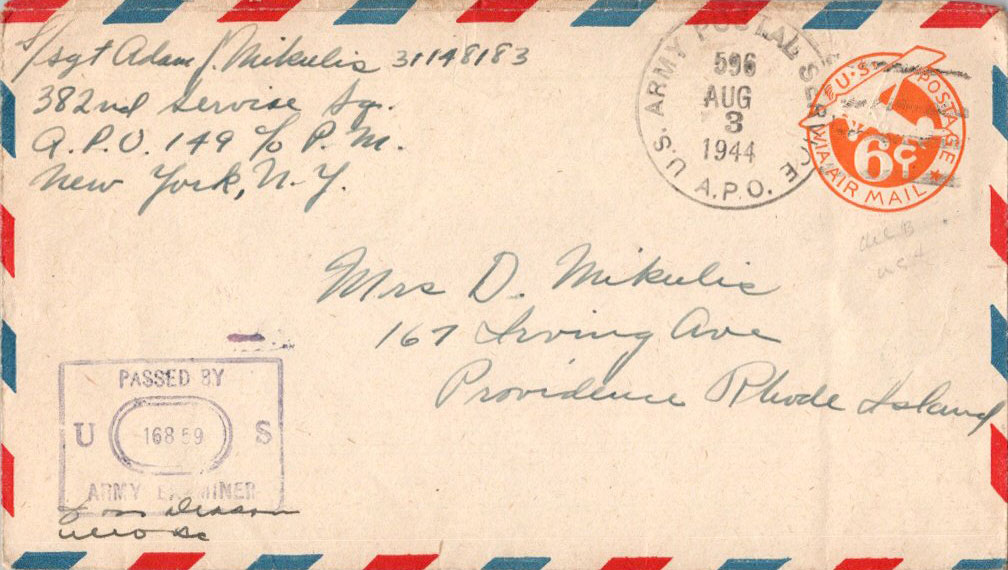 S/sgt Adam J. Mikulis 31148183
382nd Service Sq.
A.P.O. 149 c/o P. M.
New York, N. Y.
U.S. ARMY POSTAL SERVICE
596
AUG
3
1944
A.P.O.
U.S. POSTAGE
6¢
VIA AIR MAIL
Mrs D. Mikulis
167 Irving Ave
Providence Rhode Island
PASSED BY
U 16859 S
ARMY EXAMINER